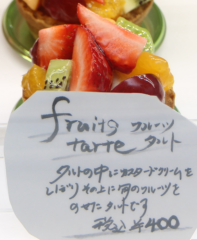 fruits フルーツ
tarte タルト
タルトの中にカスタードクリームを
しぼり その上に旬のフルーツを
のせた タルトです
税込 ¥400